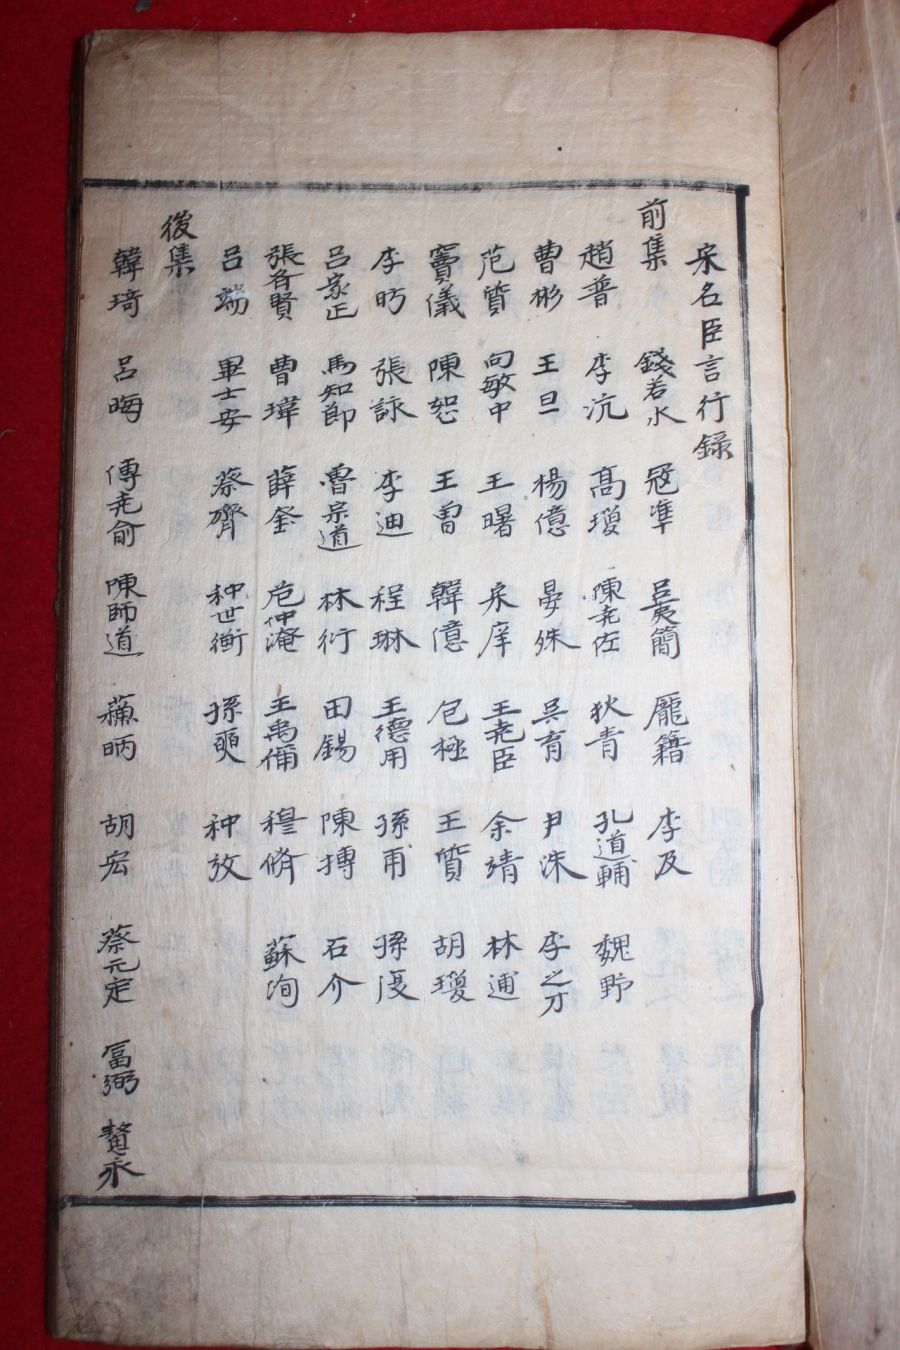 宋名臣言行錄
前集 錢若水 寇準 呂夷簡 龐籍 李及
趙普 李沆 高瓊 陳堯佐 狄青 孔道輔 魏野
曹彬 王旦 楊億 晏殊 吳育 尹洙 李之才
范質 向敏中 王曙 宋庠 王堯臣 余靖 林逋
竇儀 陳恕 王曾 韓億 包極 王質 胡瓊
李昉 張詠 李迪 程琳 王德用 孫甫 孫復
呂蒙正 馬知節 魯宗道 林衍 田錫 陳摶 石介
張齊賢 曹瑋 薛奎 范仲淹 王禹偁 穆脩 蘇洵
呂端 畢士安 蔡齊 种世衡 孫奭 种放
後集
韓琦 呂晦 傅堯俞 陳師道 蘇昞 胡宏 蔡元定 富弼 贊永